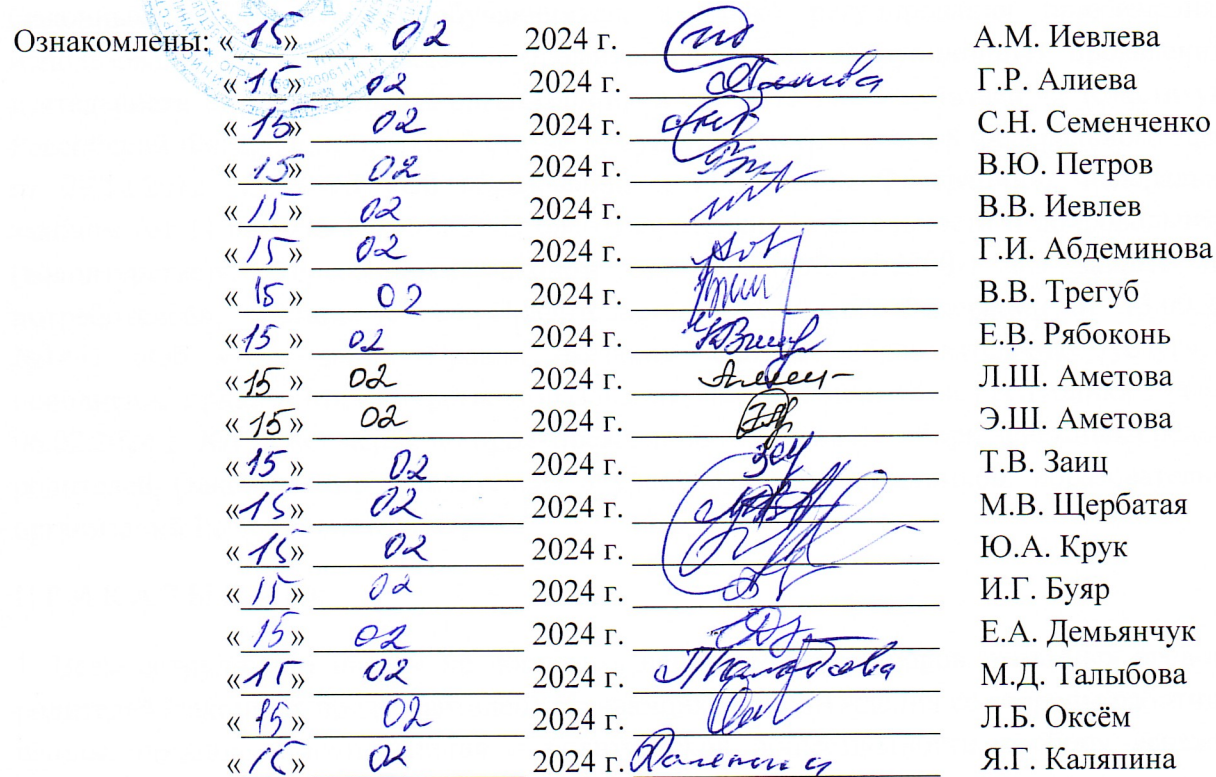 Ознакомлены: «15» 02 2024 г. А.М. Иевлева
«15» 02 2024 г. Г.Р. Алиева
«15» 02 2024 г. С.Н. Семенченко
«15» 02 2024 г. В.Ю. Петров
«15» 02 2024 г. В.В. Иевлев
«15» 02 2024 г. Г.И. Абдеминова
«15» 02 2024 г. В.В. Трегуб
«15» 02 2024 г. Е.В. Рябоконь
«15» 02 2024 г. Л.Ш. Аметова
«15» 02 2024 г. Э.Ш. Аметова
«15» 02 2024 г. Т.В. Заиц
«15» 02 2024 г. М.В. Щербатая
«15» 02 2024 г. Ю.А. Крук
«15» 02 2024 г. И.Г. Буяр
«15» 02 2024 г. Е.А. Демьянчук
«15» 02 2024 г. М.Д. Талыбова
«15» 02 2024 г. Л.Б. Оксём
«15» 02 2024 г. Я.Г. Каляпина